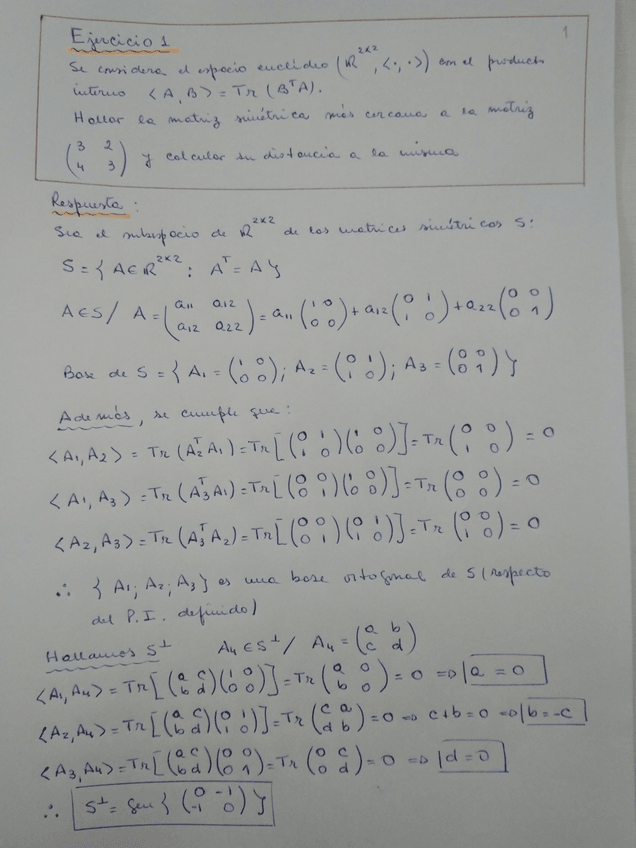 1
Ejercicio 1
Se considera el espacio euclídeo (ℝ^{2×2}, <·,·>) con el producto
interno <A, B> = Tr (B^T A).
Hallar la matriz simétrica más cercana a la matriz
(3 2; 4 3) y calcular su distancia a la misma
Respuesta :
Sea el subespacio de ℝ^{2×2} de las matrices simétricas S:
S = { A ∈ ℝ^{2×2} : A^T = A }
A ∈ S / A = (a11 a12; a12 a22) = a11 (1 0; 0 0) + a12 (0 1; 1 0) + a22 (0 0; 0 1)
Base de S = { A1 = (1 0; 0 0); A2 = (0 1; 1 0); A3 = (0 0; 0 1) }
Además, se cumple que :
<A1, A2> = Tr (A2^T A1) = Tr [(0 1; 1 0)(1 0; 0 0)] = Tr (0 0; 1 0) = 0
<A1, A3> = Tr (A3^T A1) = Tr [(0 0; 0 1)(1 0; 0 0)] = Tr (0 0; 0 0) = 0
<A2, A3> = Tr (A3^T A2) = Tr [(0 0; 0 1)(0 1; 1 0)] = Tr (0 0; 1 0) = 0
∴ { A1; A2; A3 } es una base ortogonal de S (respecto
del P.I. definido)
Hallamos S^⊥ A4 ∈ S^⊥ / A4 = (a b; c d)
<A1, A4> = Tr [(a c; b d)(1 0; 0 0)] = Tr (a 0; b 0) = 0 ⇒ a = 0
<A2, A4> = Tr [(a c; b d)(0 1; 1 0)] = Tr (c a; d b) = 0 ⇒ c+b = 0 ⇒ b = -c
<A3, A4> = Tr [(a c; b d)(0 0; 0 1) = Tr (0 c; 0 d) = 0 ⇒ d = 0
∴ S^⊥ = gen { (0 -1; -1 0) }